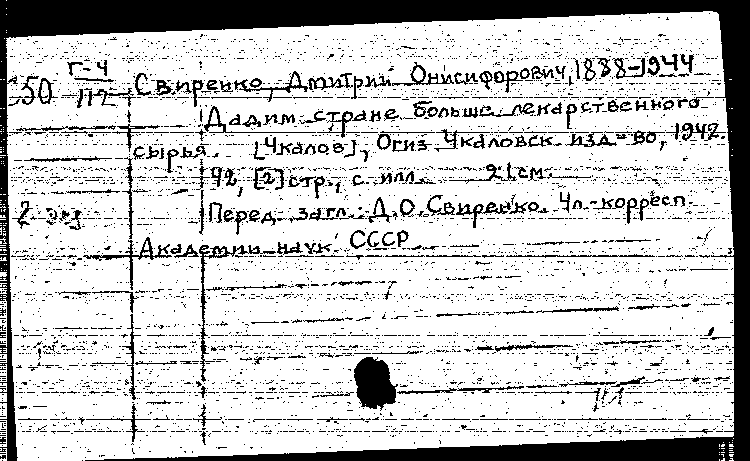 Г-4
50 112 Свиренко, Дмитрий Онисифорович, 1888-1944
Дадим стране больше лекарственного
сырья. [Чкалов], Огиз. Чкаловск. изд-во, 1942.
92, [2] стр., с илл. 21 см.
2 экз Перед загл.: Д.О. Свиренко. Чл.-корресп.
Академии наук СССР